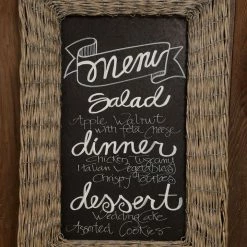 menu
Salad
Apple Walnut
with feta cheese
dinner
Chicken Tuscany
Italian Vegetables
Chrispy Potatoes
dessert
Wedding Cake
Assorted Cookies